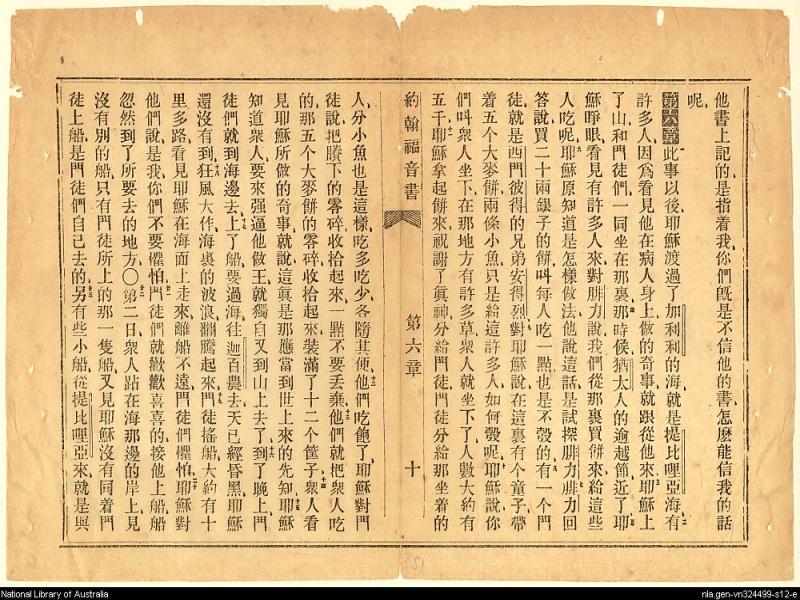 他書上記的是指着我你們旣是不信他的書怎麼能信我的話
呢
第六章此事以後耶穌渡過了加利利的海就是提比哩亞海有
許多人因爲看見他在病人身上做的奇事就跟從他來耶穌上
了山和門徒們一同坐在那裏那時候猶太人的逾越節近了耶
穌睜眼看見有許多人來對腓力說我們從那裏買餅來給這些
人吃呢耶穌原知道是怎樣做法他說這話是試探腓力腓力回
答說買二十兩銀子的餅呌每人吃一點也是不彀的有一個門
徒就是西門彼得的兄弟安得烈對耶穌說在這裏有个童子帶
着五个大麥餅兩條小魚只是給這許多人如何彀呢耶穌說你
們呌衆人坐下在那地方有許多草衆人就坐下了人數大約有
五千耶穌拿起餅來祝謝了眞神分給門徒門徒分給那坐着的
約翰福音書 第六章 十
人分小魚也是這樣吃多吃少各隨其便他們吃飽了耶穌對門
徒說把賸下的零碎收拾起來一點不要丢棄他們就把衆人吃
的那五个大麥餅的零碎收拾起來裝滿了十二个筐子衆人看
見耶穌所做的奇事就說這眞是那應當到世上來的先知耶穌
知道衆人要來强逼他做王就獨自又到山上去了到了晚上門
徒們就到海邊去上了船要過海往迦百農去天已經昏黑耶穌
還沒有到狂風大作海裏的波浪翻騰起來門徒搖船大約有十
里多路看見耶穌在海面上走來離船不遠門徒們懼怕耶穌對
他們說是我你們不要懼怕門徒們就歡歡喜喜的接他上船船
忽然到了所要去的地方〇第二日衆人跕在海那邊的岸上見
沒有别的船只有門徒所上的那一隻船又見耶穌沒有同着門
徒上船是門徒們自己去的另有些小船從提比哩亞來就是與
National Library of Australia
nla.gen-vn324499-s12-e